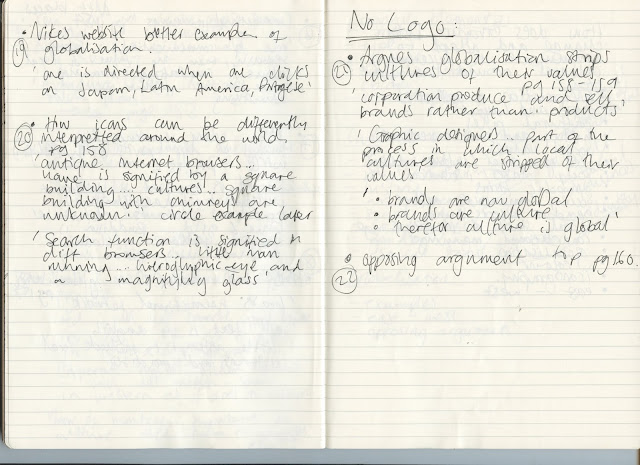 • Nikes website better example of
(19) globalisation.
'one is directed when one clicks
on Japan, Latin America,
• How icons can be differently
(20) interpretted around the world.
pg 158
'antique internet browsers...
home is signified by a square
building.... cultures.. square
building with chimneys are
unknown.' circle example later
'Search function is signified in
diff browsers... little man
running.... hieroglyphic-eye and
a magnifying glass'
No Logo:
• Argues globalisation strips
(21) cultures of their values
pg 158-159
'corporation produce and sell
brands rather than products'
'Graphic designers.. part of the
process in which local
cultures are stripped of their
values'
'• brands are now global
• brands are culture
• therefor culture is global'
• opposing argument top pg 160.
(22)